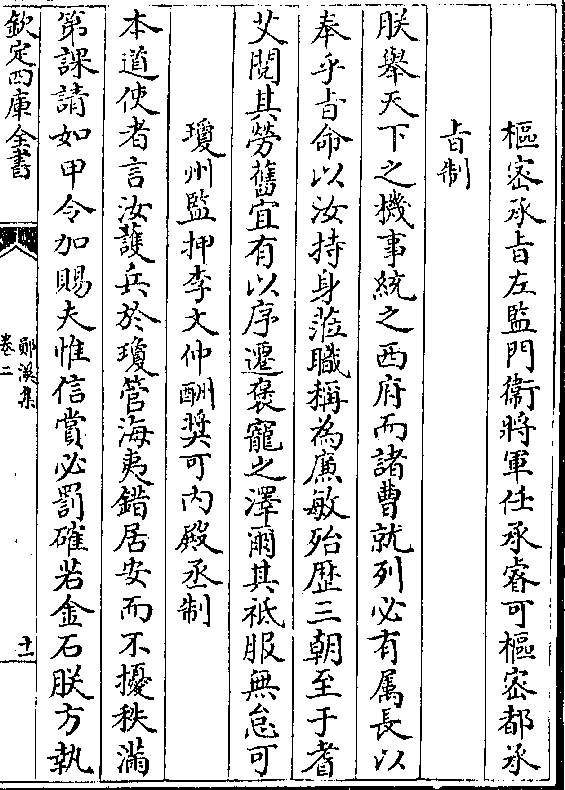 樞密承旨左監門衞將軍任承睿可樞密都承
旨制
朕舉天下之機事統之西府而諸曹就列必有属長以
奉乎旨命以汝持身蒞職稱為廉敏殆歴三朝至于耆
艾閱其勞舊宜有以序遷褒寵之澤爾其祗服無怠可
瓊州監押李文仲酬奬可内殿丞制
本道使者言汝護兵於瓊管海夷錯居安而不擾秩滿
第課請如甲令加賜夫惟信賞必罰確若金石朕方執
欽定四庫全書
鄖溪集
卷二
十一